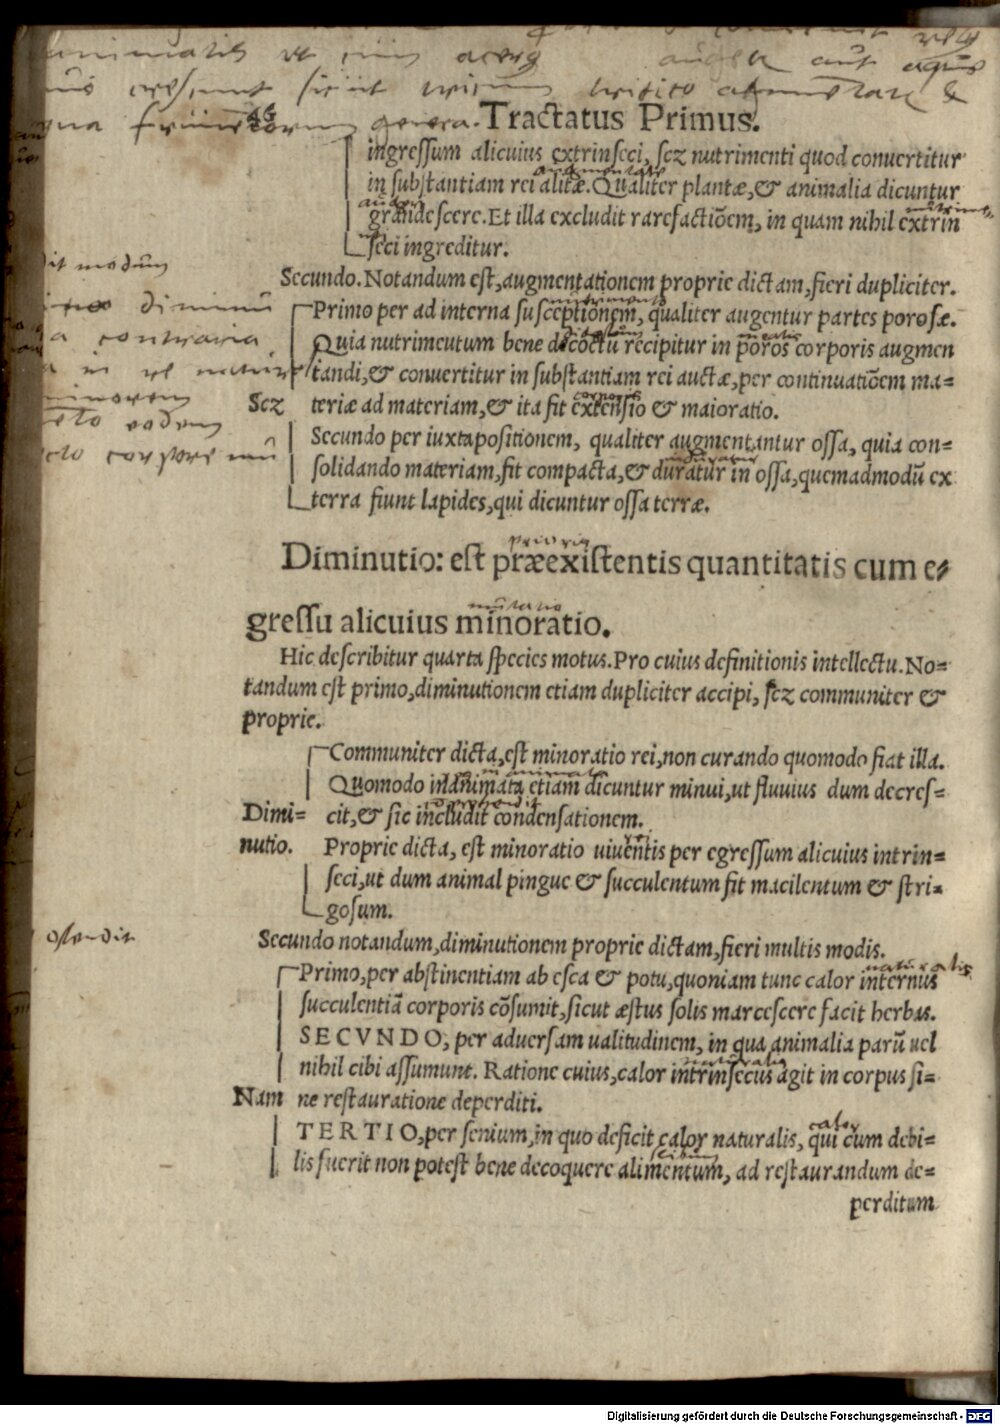 animalis
crescunt sicut
genera. Tractatus Primus.
ingressum alicuius extrinseci, scz nutrimenti quod conuertitur
in substantiam rei alitæ. Qualiter plantæ, & animalia dicuntur
grandescere. Et illa excludit rarefactiõem, in quam nihil extrin
seci ingreditur.
dit modum
Secundo. Notandum est, augmentationem proprie dictam, fieri dupliciter.
Primo per ad interna susceptionem, qualiter augentur partes porosæ.
contraria
Quia nutrimentum bene decoctū recipitur in poros corporis augmen
tandi, & conuertitur in substantiam rei auctæ, per continuatiõem ma=
Scz teriæ ad materiam, & ita fit extensio & maioratio.
eodem
Secundo per iuxtapositionem, qualiter augmentantur ossa, quia con=
solidando materiam, fit compacta, & duratur in ossa, quemadmodū ex
terra fiunt lapides, qui dicuntur ossa terræ.
Diminutio: est præexistentis quantitatis cum e=
gressu alicuius minoratio.
Hic describitur quarta species motus. Pro cuius definitionis intellectu. No=
tandum est primo, diminutionem etiam dupliciter accipi, scz communiter &
proprie.
Communiter dicta, est minoratio rei, non curando quomodo fiat illa.
in animata
Quomodo inanimata etiam dicuntur minui, ut fluuius dum decres=
comprehendit
Dimi= cit, & sic includit condensationem.
nutio. Proprie dicta, est minoratio uiuentis per egressum alicuius intrin=
seci, ut dum animal pingue & succulentum fit macilentum & stri=
gosum.
ostendit
Secundo notandum, diminutionem proprie dictam, fieri multis modis.
naturalis
Primo, per abstinentiam ab esca & potu, quoniam tunc calor internus
succulentiã corporis cõsumit, sicut æstus solis marcescere facit herbas.
SECVNDO, per aduersam ualitudinem, in qua animalia parū uel
naturalis
nihil cibi assumunt. Ratione cuius, calor intrinsecus agit in corpus si=
Nam ne restauratione deperditi.
calor
TERTIO, per senium, in quo deficit calor naturalis, qui cum debi=
cibum
lis fuerit non potest bene decoquere alimentum, ad restaurandum de=
perditum
Digitalisierung gefördert durch die Deutsche Forschungsgemeinschaft - DFG